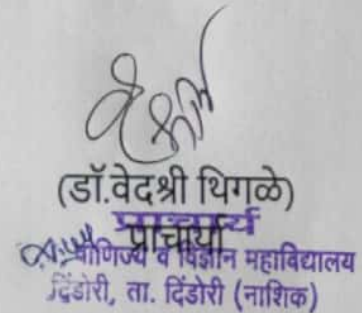 (डॉ.वेदश्री थिगळे)
प्राचार्य
प्राचार्या
वाणिज्य व विज्ञान महाविद्यालय
दिंडोरी, ता. दिंडोरी (नाशिक)